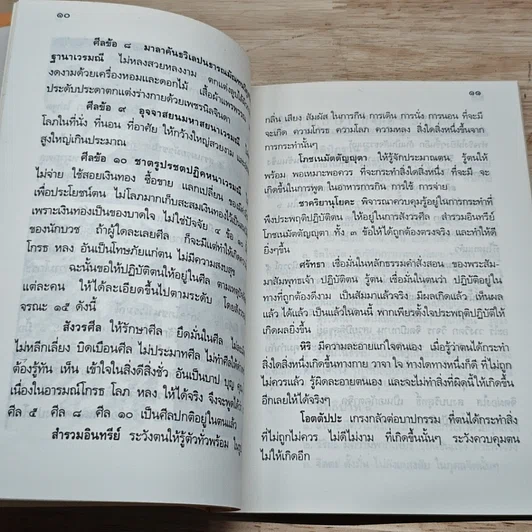 ๑๐
ศีลข้อ ๘ มาลาคันธะวิเลปนธารณมัณฑน
ฐานาเวรมณี ไม่หลงสวยหลงงาม ตกแต่ง
งดงามด้วยเครื่องหอมและดอกไม้ เสื้อผ้าแพรพรรณ
ประดับประดาตกแต่งร่างกายด้วยเพชรนิลจินดา
ศีลข้อ ๙ อุจจาสยนมหาสยนาเวรมณี
โลภในที่นั่ง ที่นอน ที่อาศัย ให้กว้างใหญ่สวยงาม
สูงใหญ่เกินประมาณ
ศีลข้อ ๑๐ ชาตรูปรชตปฏิคหนาเวรมณี
ไม่จ่าย ใช้สอยเงินทอง ซื้อขาย แลกเปลี่ยน ของ
เพื่อประโยชน์ตน ไม่โลภมากเก็บสะสมเงินทองไว้
เพราะเงินทองเป็นของบาดใจ ไม่ใช่ปัจจัย ๔ ข้อ ๑๐
ของนักบวช ถ้าผู้ใดละเลยศีล ก็จะมีแต่ทำให้เกิด
โกรธ หลง อันเป็นโทษภัยแก่ตน ไม่มีความสงบสุข
ฉะนั้นขอให้ปฏิบัติตนให้อยู่ในศีล ตาม
แต่ละคน ให้ได้ละเอียดขึ้นไปตามระดับ โดย
จรณะ ๑๕ ดังนี้
สังวรศีล ให้รักษาศีล ยึดมั่นในศีล ไม่
ไม่หลีกเลี่ยง บิดเบือนศีล ไม่ประมาทศีล ไม่ทำศีลให้
ต้องรู้ทัน เห็น เข้าใจในสิ่งดีสิ่งชั่ว อันเป็นบาป บุญ คุณ
เนื่องในอารมณ์โกรธ โลภ หลง ให้ได้จริง จึงจะพูดได้ว่า
ศีล ๕ ศีล ๘ ศีล ๑๐ เป็นศีลปกติอยู่ในตนแล้ว
สำรวมอินทรีย์ ระวังตนให้รู้ตัวทั่วพร้อม ใน
๑๑
กลิ่น เสียง สัมผัส ในการกิน การเดิน การนั่ง การนอน ที่จะมี
จะเกิด ความโกรธ ความโลภ ความหลง สิ่งใดสิ่งหนึ่งขึ้นจาก
การกระทำนั้นๆ
โภชเนมัตตัญญุตา ให้รู้จักประมาณตน รู้ตนให้
พร้อม พอเหมาะพอควร ที่จะกระทำสิ่งใดสิ่งหนึ่ง ที่จะมี จะ
เกิดขึ้นในการพูด ในอาหารการกิน การใช้ การจ่าย
ชาคริยานุโยคะ พิจารณาควบคุมรู้อยู่ในการกระทำที่
พึงประพฤติปฏิบัติตน ให้อยู่ในการสังวรศีล สำรวมอินทรีย์
โภชเนมัตตัญญุตา ทั้ง ๓ ข้อให้ได้ถูกต้องตรงจริง และทำให้ดี
ยิ่งๆขึ้น
ศรัทธา เชื่อมั่นในหลักธรรมคำสั่งสอน ของพระสัม-
มาสัมพุทธเจ้า ปฏิบัติตน รู้ตน เชื่อมั่นในตนว่า ปฏิบัติอยู่ใน
ทางที่ถูกต้องดีงาม เป็นสัมมาแล้วจริง มีผลเกิดแล้ว เห็นผล
แล้ว ได้แล้ว เป็นแล้วในตนนี้ พากเพียรตั้งใจประพฤติปฏิบัติให้
เกิดผลยิ่งขึ้น
หิริ มีความละอายแก่ใจตนเอง เมื่อรู้ว่าตนได้กระทำ
สิ่งใดสิ่งหนึ่งเกิดขึ้นทางกาย วาจา ใจ ทางใดทางหนึ่งก็ดี ที่ไม่ถูก
ไม่ควรแล้ว รู้ผิดละอายตนเอง และจะไม่ทำสิ่งที่ผิดนี้ให้เกิดขึ้น
อีกเลยให้ได้จริงๆ
โอตตัปปะ เกรงกลัวต่อบาปกรรม ที่ตนได้กระทำสิ่ง
ที่ไม่ถูกไม่ควร ไม่ดีไม่งาม ที่เกิดขึ้นนั้นๆ ระวังควบคุมตน
ไม่ให้เกิดอีก